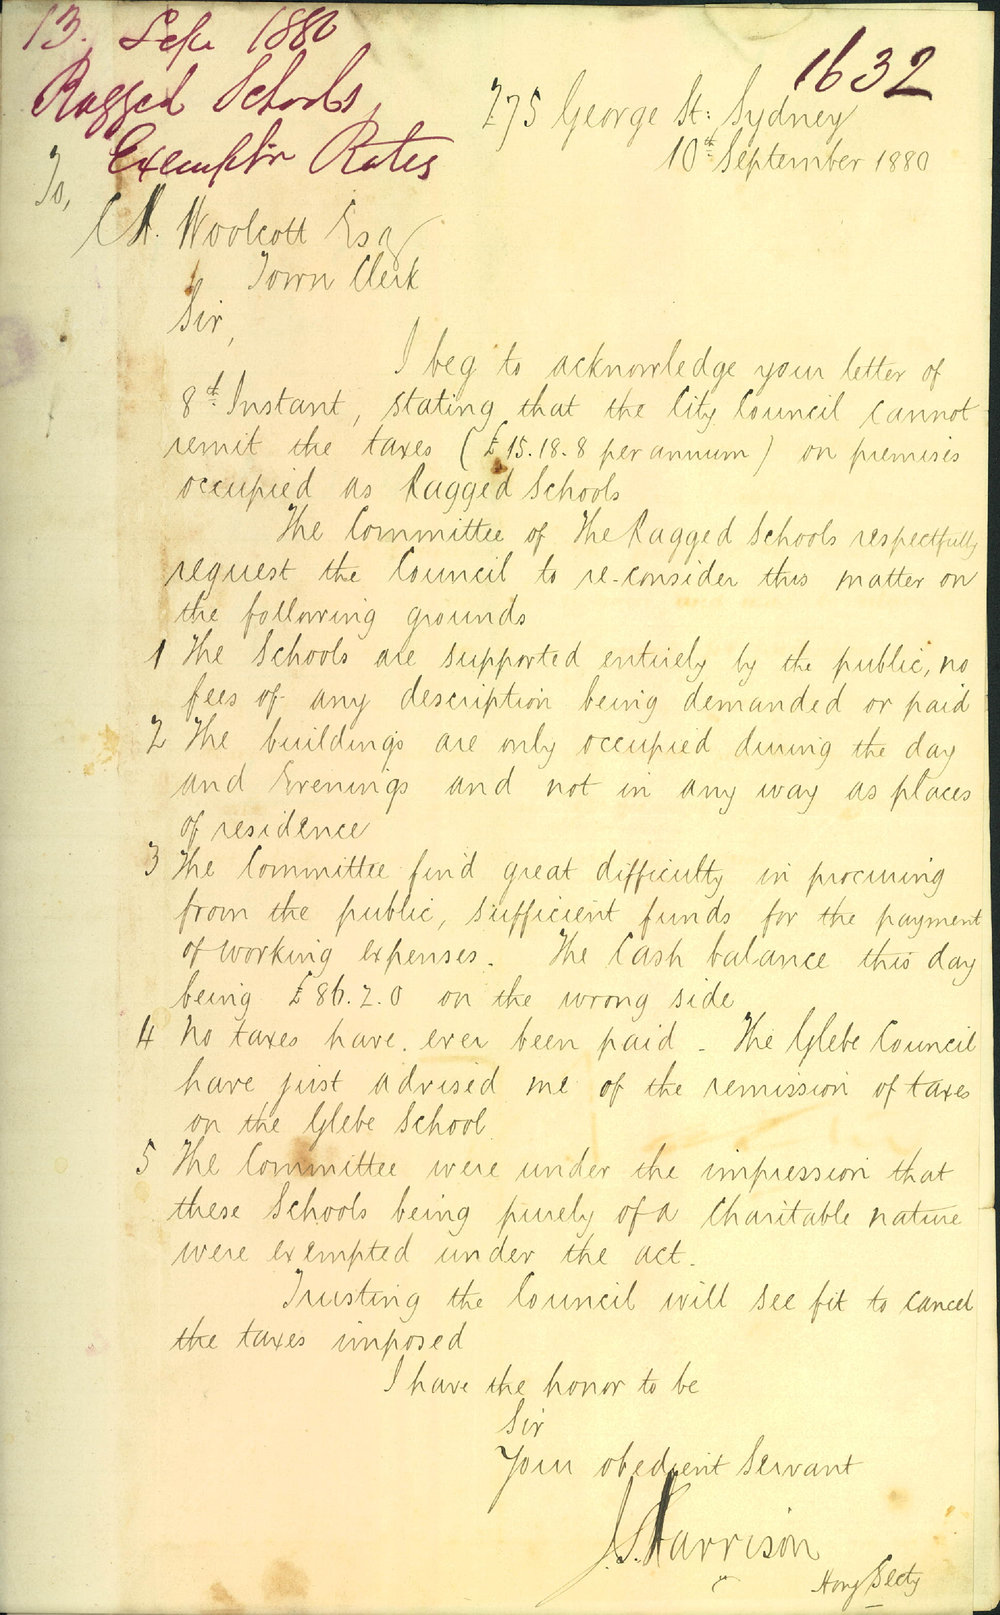 13. Sepr 1880
Ragged Schools,
Exemptn Rates
1632
275 George St: Sydney
10th September 1880
To,
C H. Woolcott Esq
Town Clerk
Sir,
I beg to acknowledge your letter of
8th Instant, stating that the City Council cannot
remit the taxes (£15.18.8 per annum) on premises
occupied as Ragged Schools
The Committee of The Ragged Schools respectfully
request the Council to re-consider this matter on
the following grounds
1 The Schools are supported entirely by the public, no
fees of any description being demanded or paid
2 The buildings are only occupied during the day
and Evenings and not in any way as places
of residence
3 The Committee find great difficulty in procuring
from the public, sufficient funds for the payment
of working expenses. The Cash balance this day
being £86.2.0 on the wrong side
4 No taxes have ever been paid - The Glebe Council
have just advised me of the remission of taxes
on the Glebe School
5 The Committee were under the impression that
these Schools being purely of a Charitable nature
were exempted under the act.
Trusting the Council will see fit to cancel
the taxes imposed
I have the honor to be
Sir
Your obedient Servant
J.S. Harrison
Hony Secty